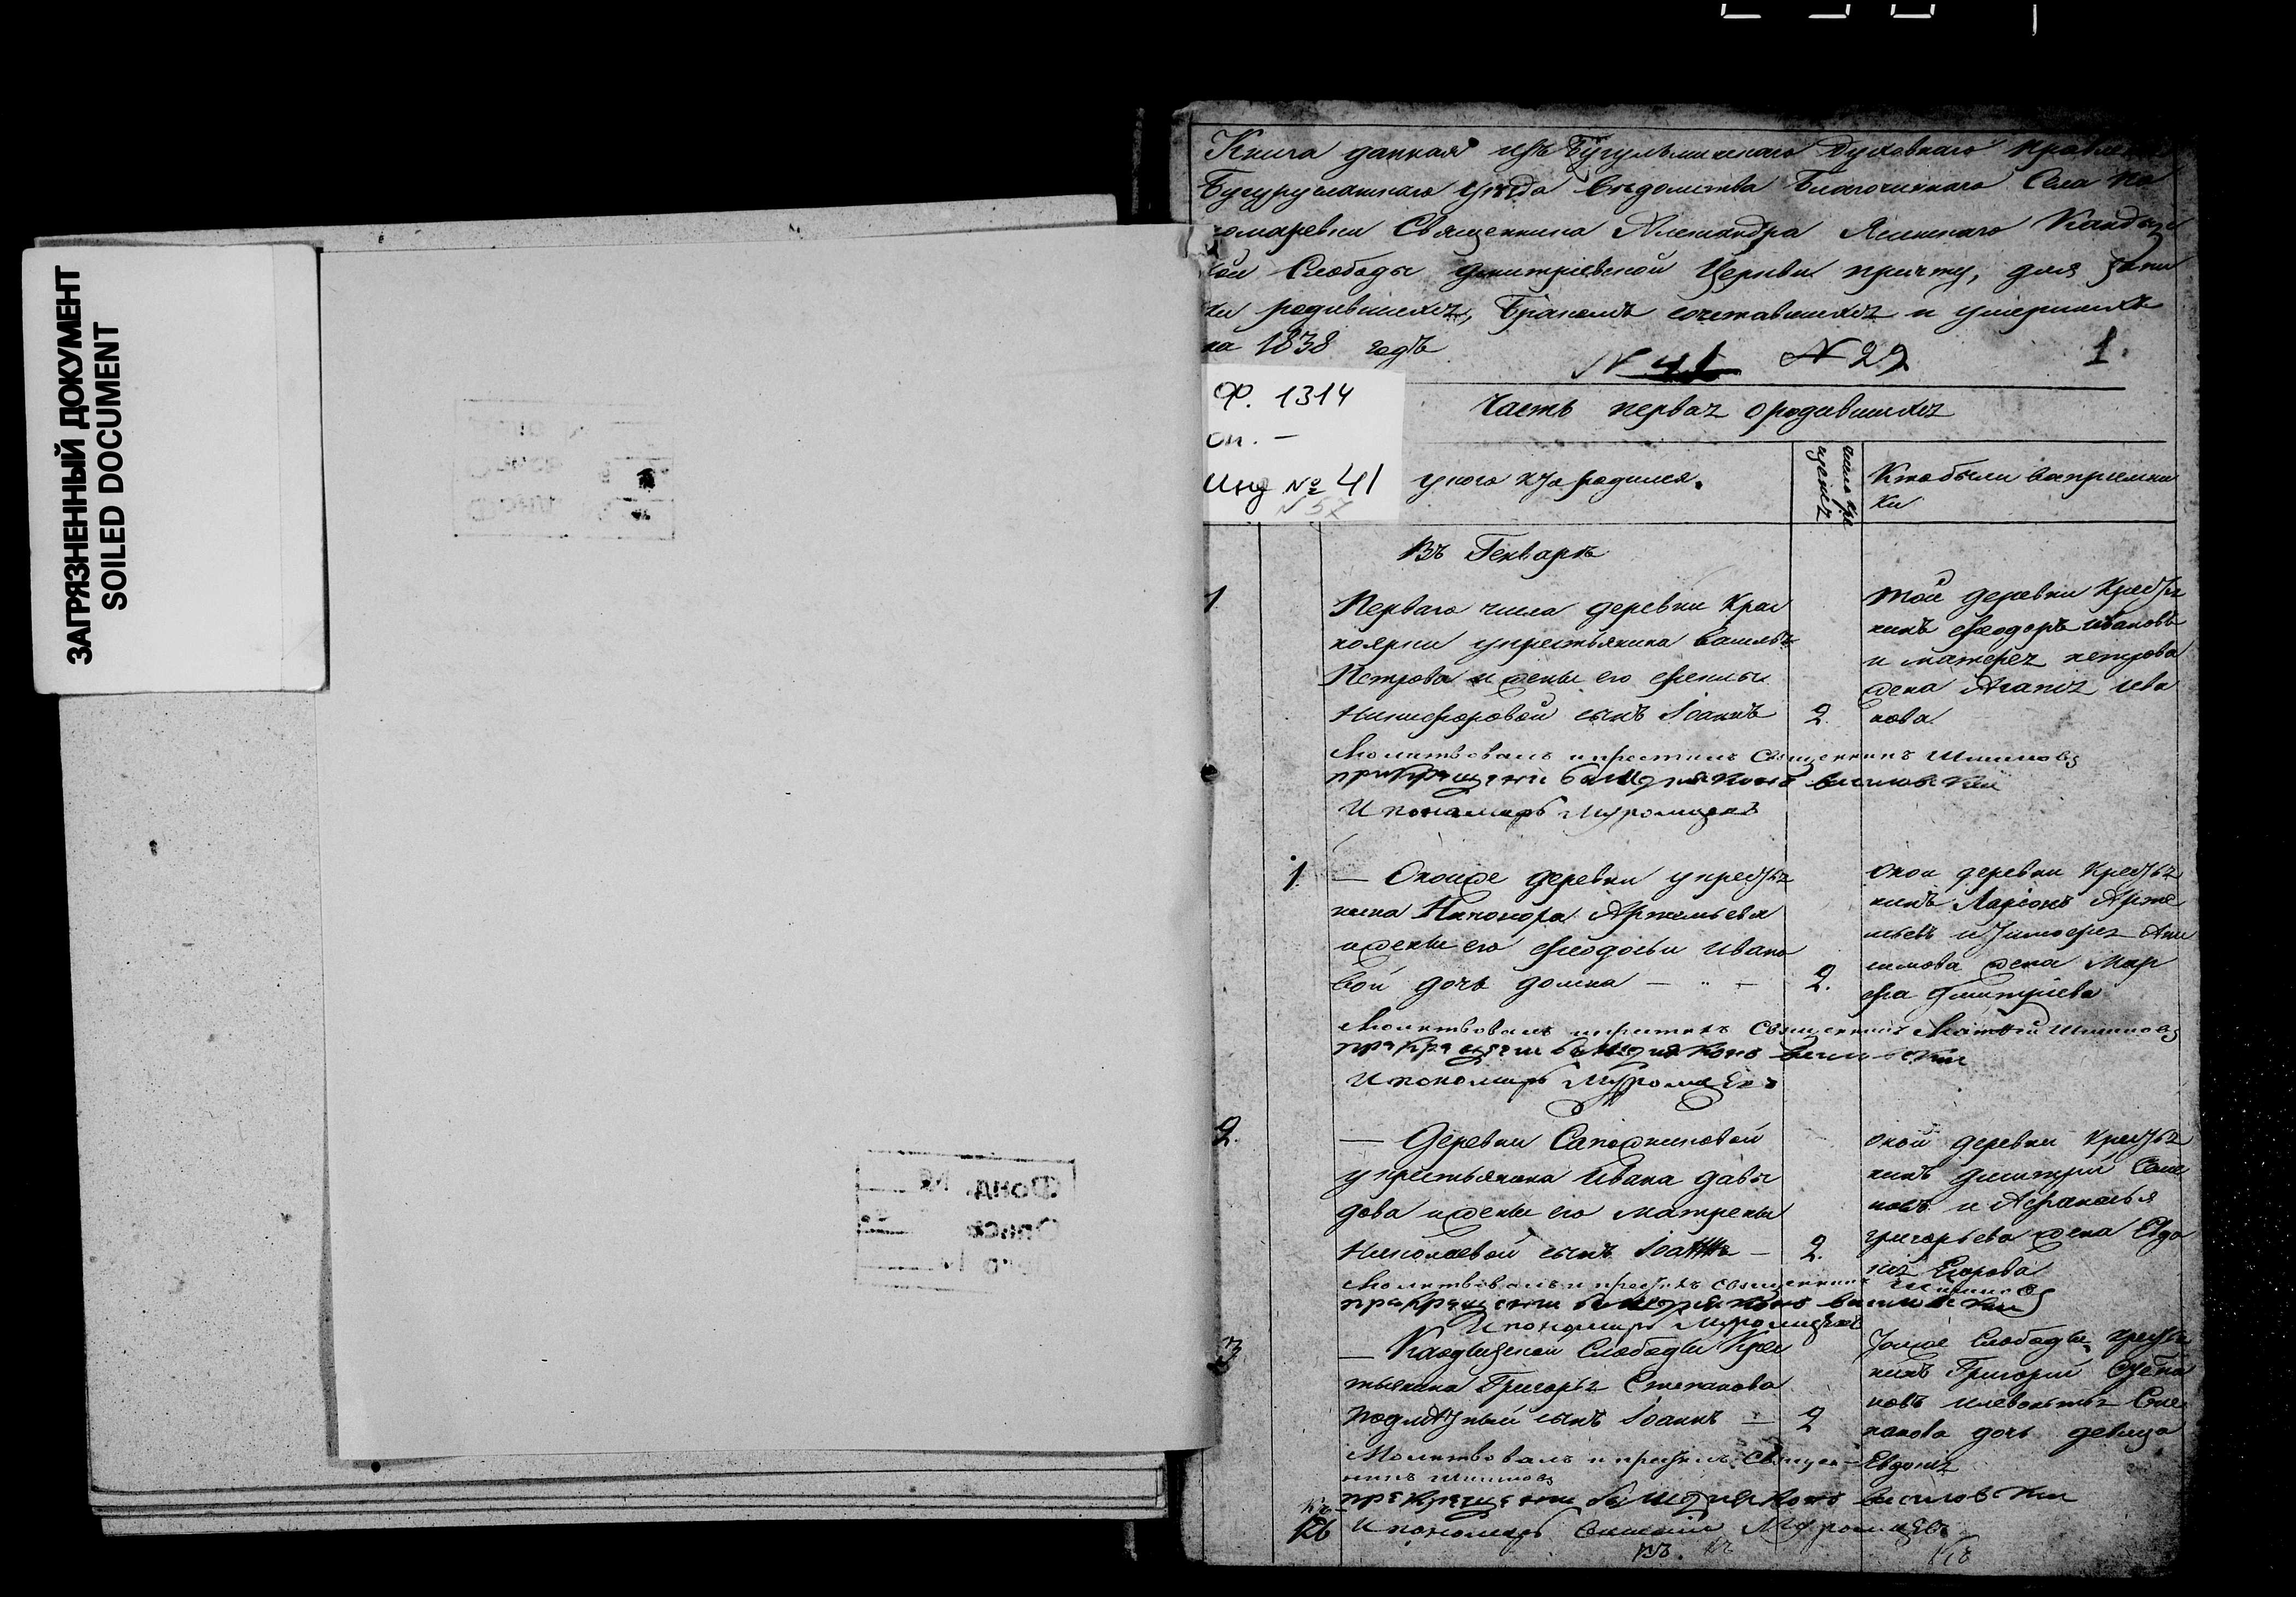 ЗАГРЯЗНЕННЫЙ ДОКУМЕНТ
SOILED DOCUMENT
Фонд №
Опись
Книга данная изъ Бугульминскаго Духовнаго Правлен
Бугурусланскаго уѣзда вѣдомства Благочиннаго Села По
номаревки Священника Александра Ясинскаго Кандыз
кой Слободы Дмитріевской Церкви причту, для запи
ки родившихся, бракомъ сочетавшихся и умершихъ
на 1838 годъ
N 41 N 29 1.
Ф. 1314
оп. –
инд № 41
N 57
Часть первая о родившихся
у кого кто родился.
число кре
щенія
Кто были воспріемни
ки
Въ Генварѣ
1
Перваго числа деревни Крас
ноярки у крестьянина Василья
Петрова и жены его Феклы
Никифоровой сынъ Іоаннъ
2.
той деревни Крестья
нинъ Феодоръ Ивановъ
и матфея петрова
жена Агапія Ива
нова
Молитвовалъ и крестилъ Священникъ Шишковъ
при крещеніи былъ дьяконъ
И пономарь Муромцевъ
1.
— Оной же деревни у крестья
нина Никонора Артемьева
и жены его Феодосьи Ивано
вой дочь домна — „ —
2.
оной деревни Крестья
нинъ Ларіонъ Арте
мьевъ и Тимофея Ани
симова жена Мар
фа Дмитріева
Молитвовалъ и крестилъ Священникъ Матвей Шишковъ
при крещеніи былъ дьяконъ
И пономарь Муромцевъ
2.
— Деревни Сапожниковой
у крестьянина Ивана давы
дова и жены его матрены
Николаевой сынъ Іоаннъ —
2.
оной деревни Крестья
нинъ Дмитрій Семе
новъ и Афанасья
григорьева жена Евдо
кія Егорова
Молитвовалъ и крестилъ священникъ Шишковъ
при крещеніи былъ дьяконъ
И пономарь Муромцевъ
3
— Кандызской Слободы Крес
тьянина Григорья Степанова
подкидный сынъ Іоаннъ —
2
Тойже Слободы крестья
нинъ Григорій Степа
новъ и
панова дочь девица
Евдокія
Молитвовалъ и крестилъ Священ-
никъ Шишковъ
при крещеніи былъ дьяконъ
126
И пономарь Муромцевъ